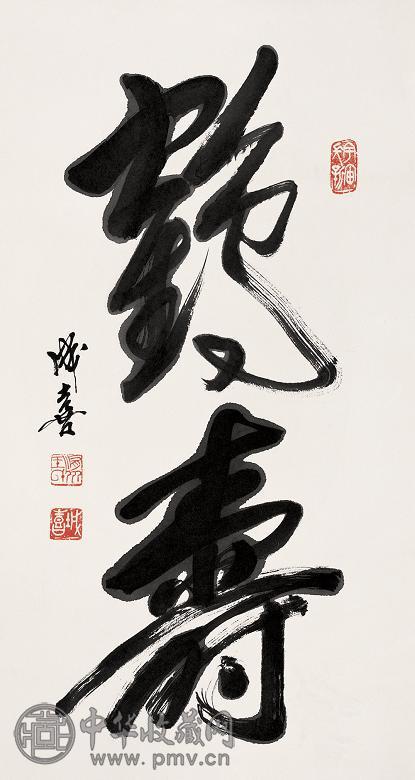 鹤寿
成喜
城喜
中华收藏网
www.pmv.cn